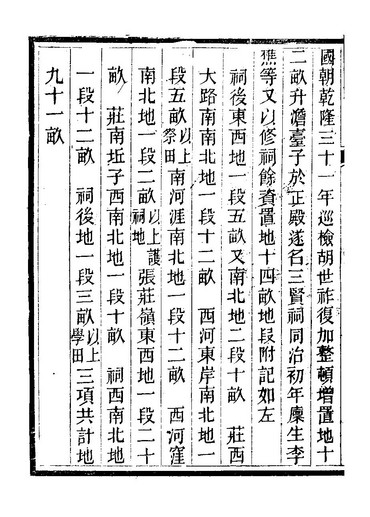 國朝乾隆三十一年巡檢胡世祚復加整頓增置地十
二畝升澹臺子於正殿遂名三賢祠同治初年廩生李
等又以修祠餘資置地十四畝地段附記如左
祠後東西地一段五畝又南北地二段十畝　莊西
大路南南北地一段十二畝　西河東岸南北地一
段五畝以上祭田南河涯南北地一段十二畝　西河窪
南北地一段二畝以上護祠地張莊嶺東西地一段二十
畝　莊南坵子西南北地一段十畝　祠西南北地
一段十二畝　祠後地一段三畝以上學田三項共計地
九十一畝